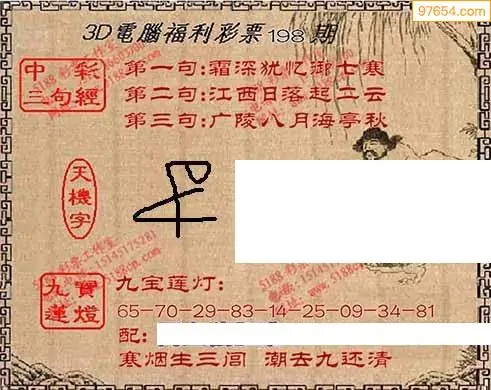 97654.com
3D電腦福利彩票198期
中彩三句經
第一句:霜深犹忆御七寒
第二句:江西日落起二云
第三句:广陵八月海亭秋
天機字
九寶蓮燈
九宝莲灯:
65-70-29-83-14-25-09-34-81
配:
寒烟生三闾 潮去九还清